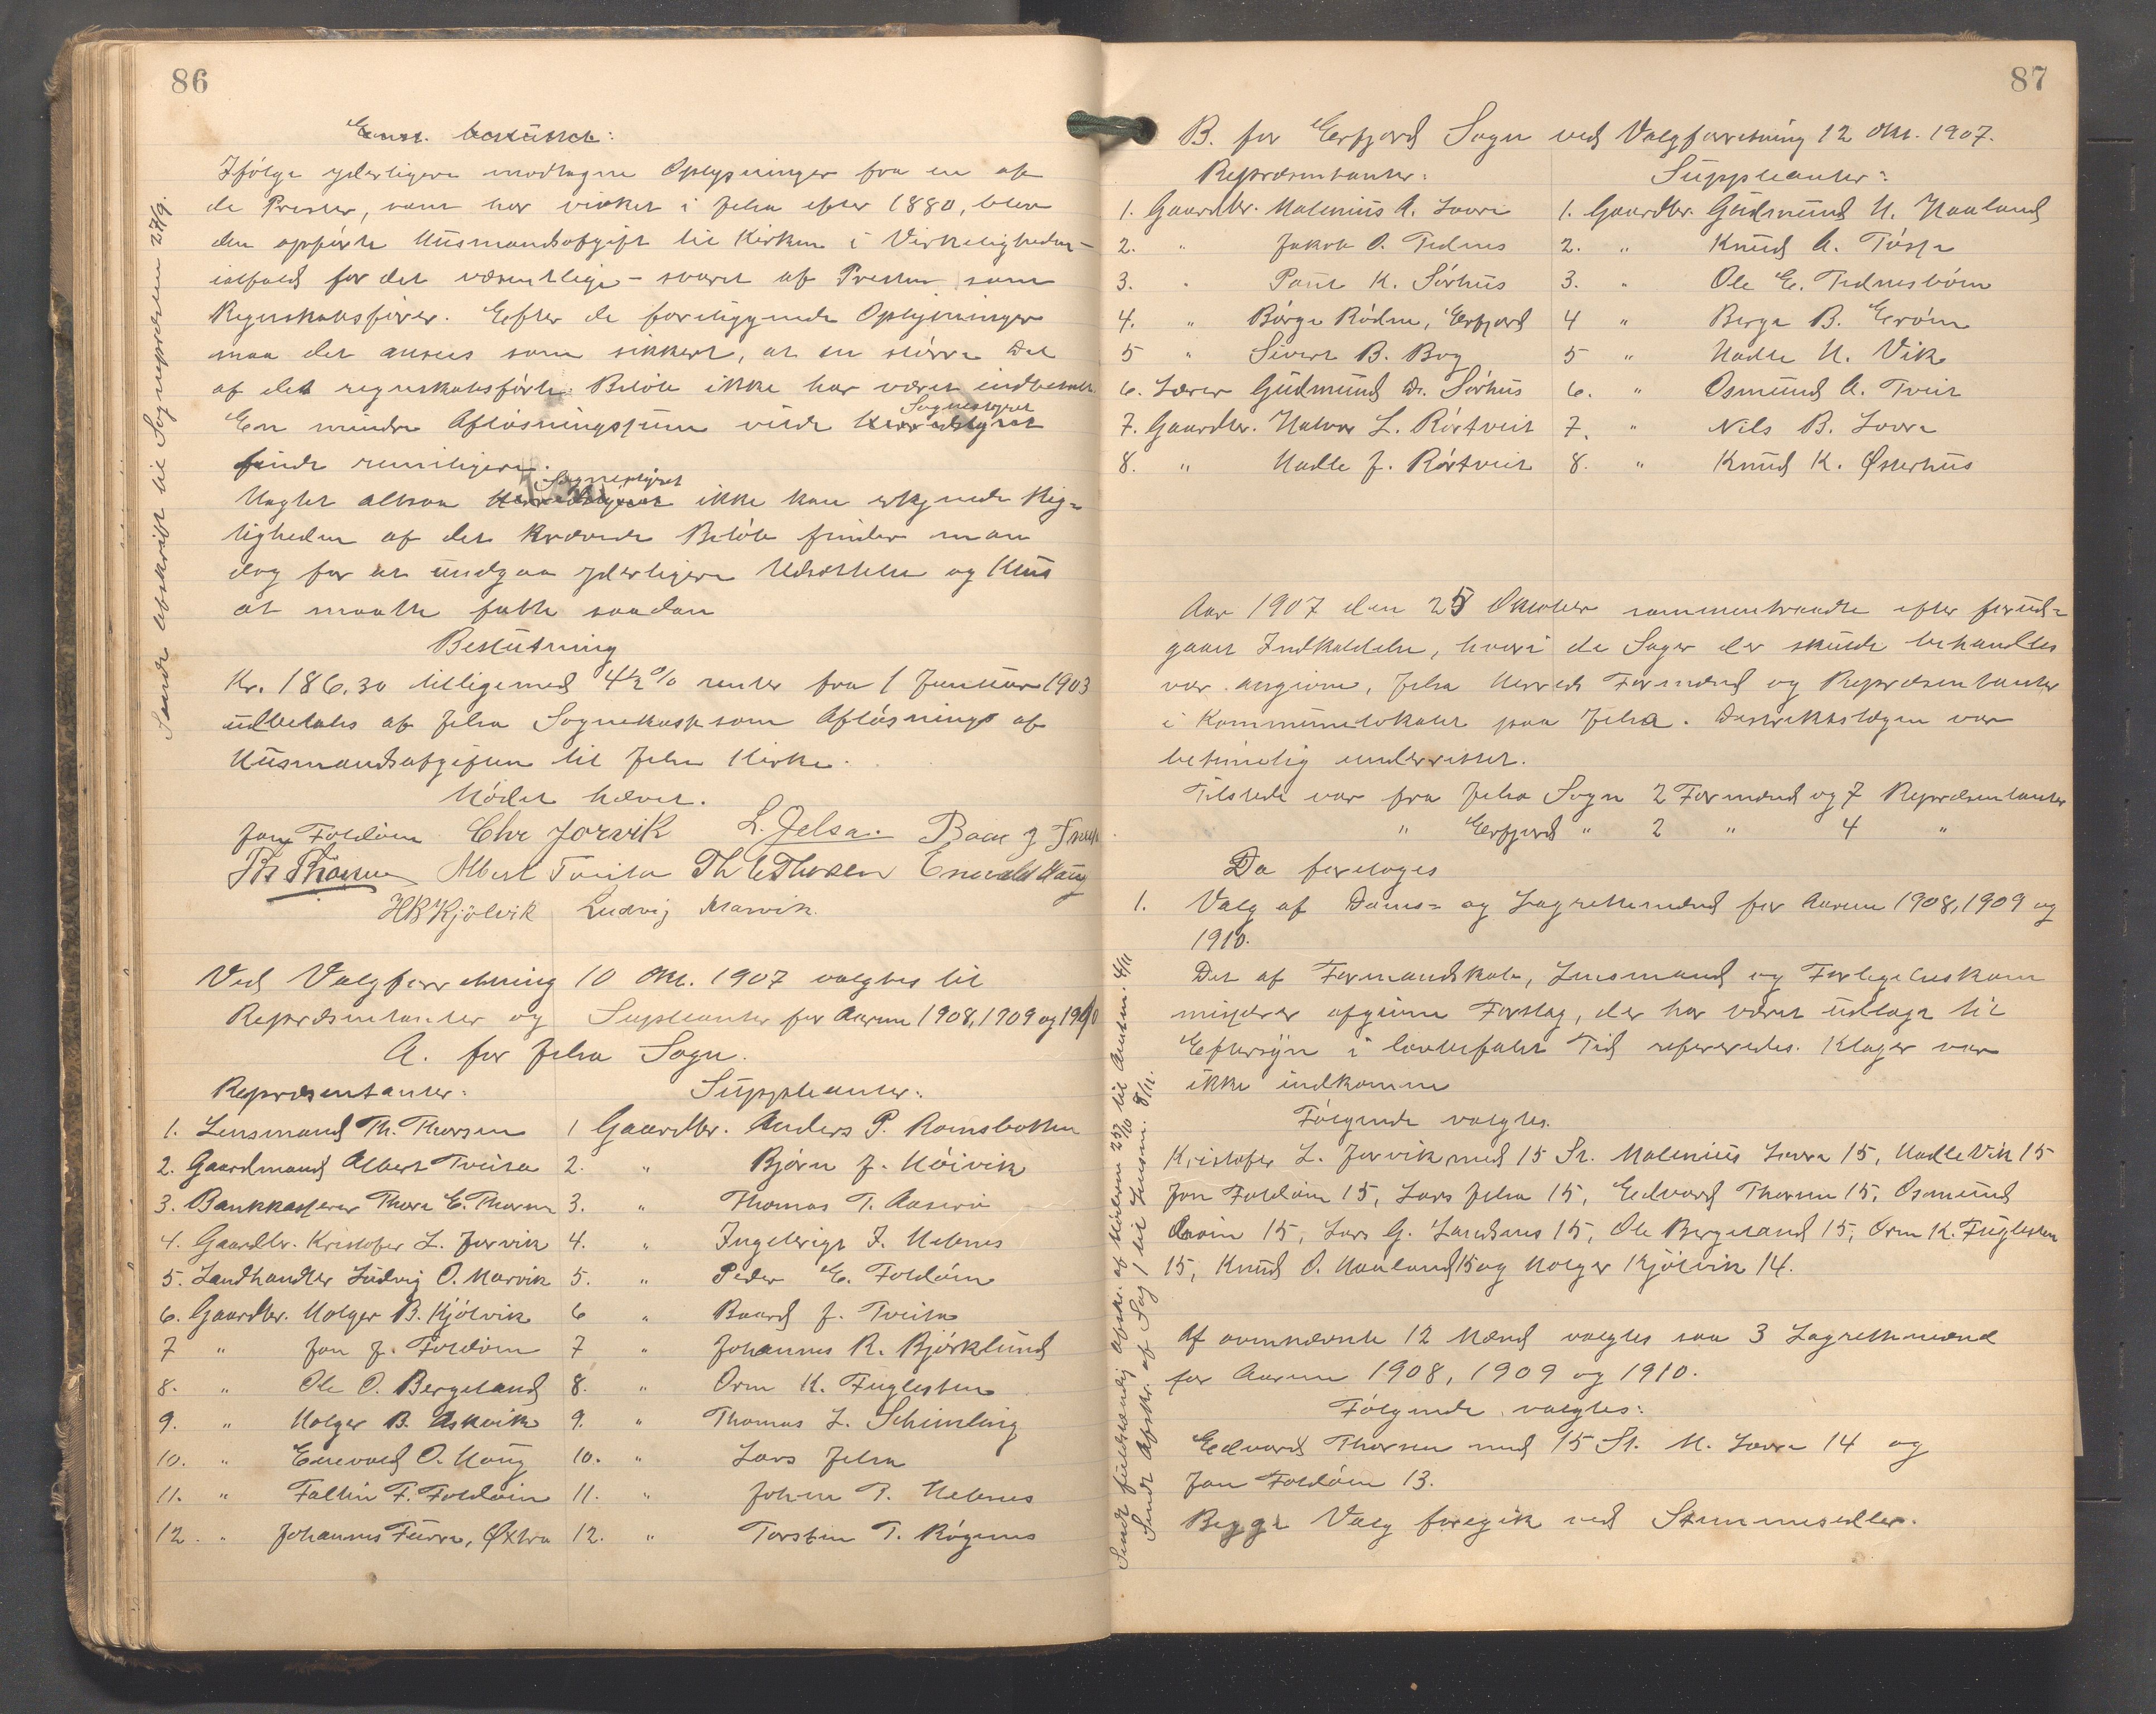 86
Enst. besluttet:
Ifølge yderligere modtagne Oplysninger fra en af
de Prester, som har virket i Jelsa efter 1880, blev
den opførte Husmandsafgift til Kirken i Virkeligheden -
ialfald for det væsentlige - svaret af Presten som
Regnskabsfører. Efter de foreliggende Oplysninger
maa det ansees som sikkert, at en større Del
af det regnskabsførte Beløb ikke har været indbetalt.
En mindre Afløsningssum vilde Herredstyret Sognestyret
finde rimeligere.
Uagtet altsaa Herredstyret Sognestyret ikke kan erkjende Rig-
tigheden af det krævede Beløb finder man
dog for at undgaa yderligere Udsættelse og
at maatte fatte saadan
Beslutning
Kr. 186,30 tilligemed 4½% renter fra 1 Januar 1903
udbetales af Jelsa Sognekasse som Afløsning af
Husmandsafgiften til Jelsa Kirke.
Mødet hævet.
Jon Foldøen Chr Jorvik L. Jelsa. Baar J Tveita
Th Thorsen Albert Tveita Th E Thorsen Enevald Haug
HB Kjølvik Ludvig Marvik.
Ved Valgforretning 10 Okt. 1907 valgtes til
Repræsentanter og Supleanter for Aarene 1908, 1909 og 1910
A. for Jelsa Sogn.
Repræsentanter: Suppleanter:
1. Lensmand Th. Thorsen 1 Gaardbr. Anders P. Ramsbotten
2. Gaardmand Albert Tveita 2. " Bjørn J. Høivik
3. Bankkasserer Thore E. Thorsen 3. " Thomas T. Aasero
4. Gaardbr. Kristofer L. Jorvik 4. " Ingebrigt J. Hebnes
5. Landhandler Ludvig O. Marvik 5. " Peder E. Foldøen
6. Gaardbr. Holger B. Kjølvik 6 " Baard J. Tveita
7 " Jon J. Foldøen 7 " Johannes R. Bjørklund
8. " Ole O. Bergeland 8. " Orm K. Fuglesten
9. " Holger B. Askvik 9. " Thomas L. Schimling
10. " Enevald O. Haug 10. " Lars Jelsa
11. " Faltin F. Foldøen 11. " Johan P. Hebnes
12. " Johannes Furre, Øxtra 12. " Torsten T. Røgenes
Sendt Afskrift til Sognepræsten 27/9.
87
B. for Erfjord Sogn ved Valgforretning 12 Okt. 1907.
Repræsentanter: Suppleanter:
1. Gaardbr. Malenius A. Lovra 1. Gaardbr. Gudmund H. Haaland
2. " Jakob O. Tednes 2. " Knud A. Tøsse
3. " Paul K. Sørhus 3. " Ole E. Tednesbøen
4. " Børge Rødne, Erfjord 4 " Berge B. Erøen
5 " Sivert B. Bog 5 " Hadle H. Vik
6. Lærer Gudmund D. Sørhus 6. " Osmund A. Tveit
7. Gaardbr. Halvor L. Rørtveit 7. " Nils B. Lovra
8. " Hadle J. Rørtveit 8. " Knud K. Østerhus
Aar 1907 den 25 Oktober sammentraadte efter forud-
gaaet Indkaldelse, hvori de Sager der skulde behandles
var angivne, Jelsa Herreds Formænd og Repræsentanter
i Kommunelokalet paa Jelsa. Distriktslægen var
betimelig underrettet.
Tilstede var fra Jelsa Sogn 2 Formænd og 7 Repræsentanter
" Erfjord " 2 " 4 "
Da foretoges
1. Valg af Doms- og Lagrettemænd for Aarene 1908, 1909 og
1910.
Det af Formandskab, Lensmand og Forligelseskom
misærer afgivne Forslag, der har været udlagt til
Eftersyn i lovbefalet Tid refereredes. Klager var
ikke indkomne
Følgende valgtes.
Kristofer L. Jorvik med 15 St. Malenius Lovra 15, Hadle Vik 15
Jon Foldøen 15, Lars Jelsa 15, Edvard Thorsen 15, Osmund
Erøen 15, Lars G. Landsnes 15, Ole Bergeland 15, Orm K. Fuglesten
15, Knud O. Haaland 15 og Holger Kjølvik 14.
Af ovennævnte 12 Mænd valgtes saa 3 Lagrettemænd
for Aarene 1908, 1909 og 1910.
Følgende valgtes:
Edvard Thorsen med 15 St. M. Lovra 14 og
Jon Foldøen 13.
Begge Valg foregik ved Stemmesedler.
Sendt fuldstændig Afskr. af Møderne 25/10 til Amtm. 4/11
Sendt Afskr. af Sag 1 til Lensm. 8/11.